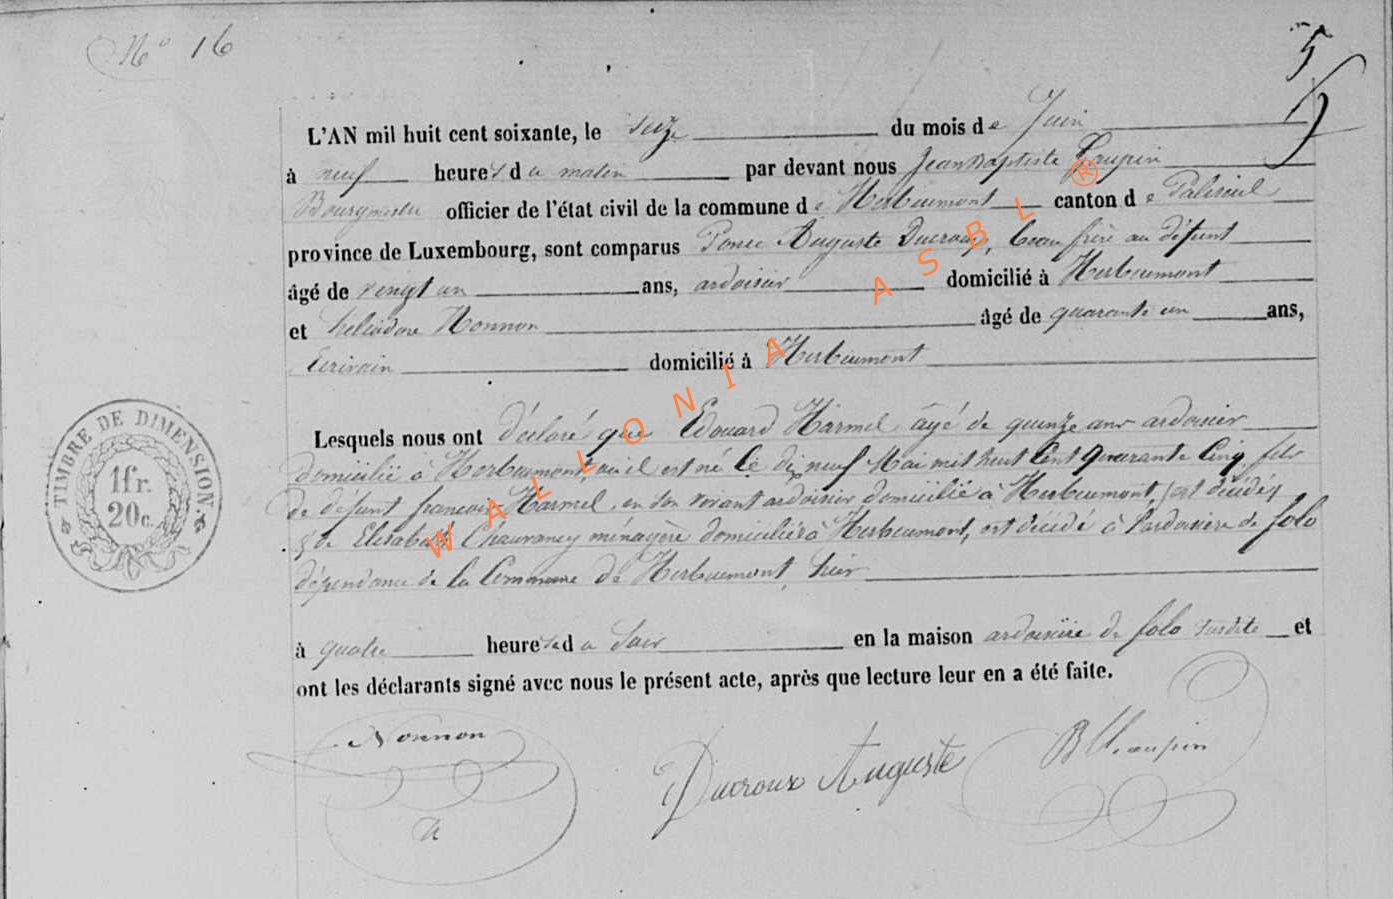 N° 16
5
L'AN mil huit cent soixante, le seize du mois de Juin
à neuf heures du matin par devant nous Jean Baptiste
Bourgmestre officier de l'état civil de la commune de Herbeumont canton de Paliseul
province de Luxembourg, sont comparus Ponce Auguste Ducroux, beau frère au défunt
âgé de vingt un ans, ardoisier domicilié à Herbeumont
et héliodore Nonnon âgé de quarante un ans,
Ecrivain domicilié à Herbeumont
Lesquels nous ont déclaré que Edouard Harmel âgé de quinze ans ardoisier
domicilié à Herbeumont, où il est né le dix neuf Mai mil huit Cent Quarante Cinq, fils
de défunt françois Harmel, en son vivant ardoisier domicilié à Herbeumont, (est décédé)
& de Elisabeth Chauvancy ménagère domiciliée à Herbeumont, est décédé à l'ardoisière de folo
dépendance de la Commune de Herbeumont, hier
à quatre heures du Soir en la maison ardoisière de folo susdite et
ont les déclarants signé avec nous le présent acte, après que lecture leur en a été faite.
Nonnon
Ducroux Auguste
TIMBRE DE DIMENSION.
1fr.
20c.
WALLONIA ASBL ®